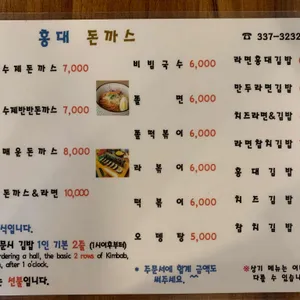 홍대 돈까스
☎ 337-3232
수제돈까스 7,000
수제반반돈까스 7,000
매운돈까스 8,000
돈까스&라면 10,000
비빔국수 6,000
쫄면 6,000
쫄떡볶이 6,000
라볶이 6,000
떡볶이 6,000
오뎅탕 5,000
라면홍대김밥
만두라면김밥
치즈라면&김밥
라면참치김밥
홍대김밥
치즈김밥
참치김밥
문서 김밥 1인 기본 2줄 (1시이후부터)
rdering a hall, the basic 2 rows of Kimbab,
after 1 o'clock.
는 선불입니다.
* 주문서에 합계 금액도
써주세요. ~~
※상기 메뉴는
다를 수 있습